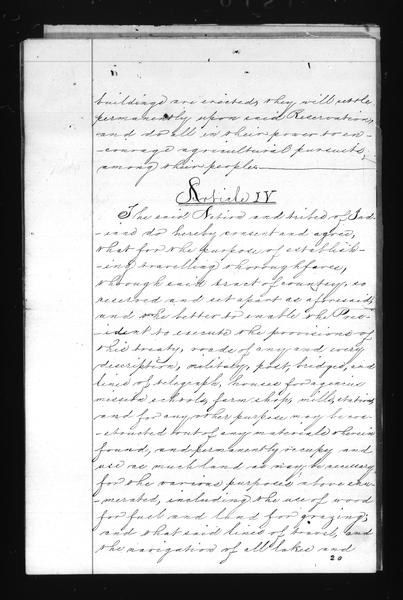 buildings are erected, they will settle
permanently upon said Reservation,
and do all in their power to en-
courage agricultural pursuits,
among their people.
Article IV
The said Nations and tribes of Ind-
ians do hereby consent and agree,
that for the purpose of establish-
ing travelling thoroughfares,
through said tract of country, so
reserved and set apart as aforesaid,
and the better to enable the Pres-
ident to execute the provisions of
this treaty, roads of any and every
description, military, post, bridges, and
lines of telegraph, houses for agencies
mission schools, farm shop, mills, stations
and for any other purpose may be con-
structed out of any materials therein
found, and permanently occupy and
use as much land as may be necessary
for the various purposes above enu-
merated, including the use of wood
for fuel and land for grazing;
and that said lines of travel, and
the navigation of all lakes and
20